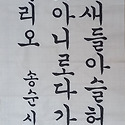 새들아슬허
아니로다가
리오 송순시